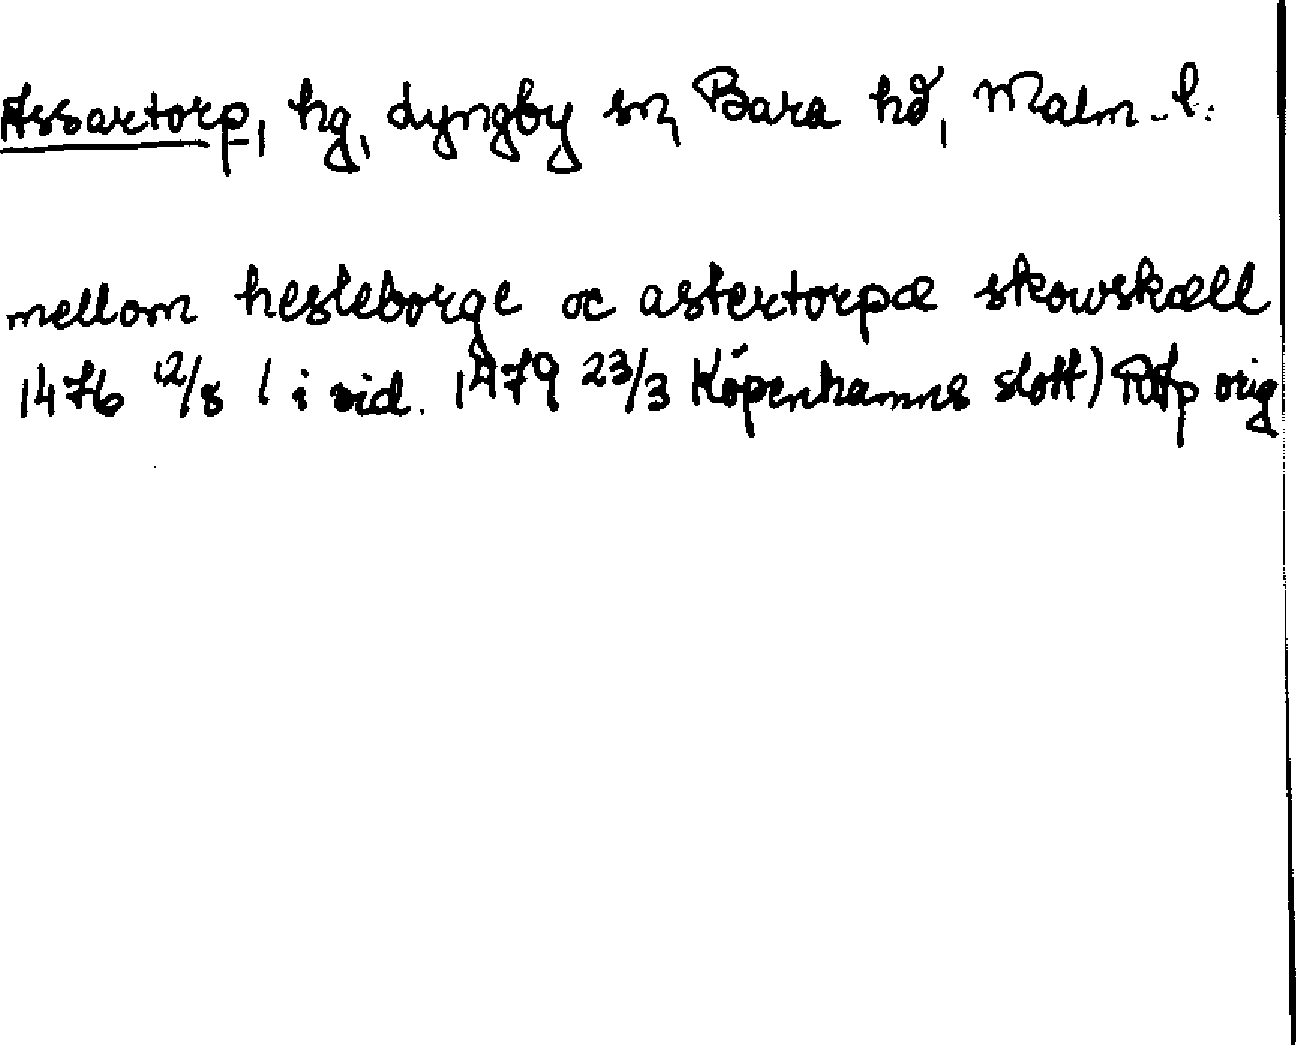 Assartorp, hg, Lyngby sn, Bara hd, Malm. l.
mellom hesleborge oc astertorpæ skowskæll
1476 12/8 ( i vid. 1479 23/3 Köpenhamns slott) RAp orig